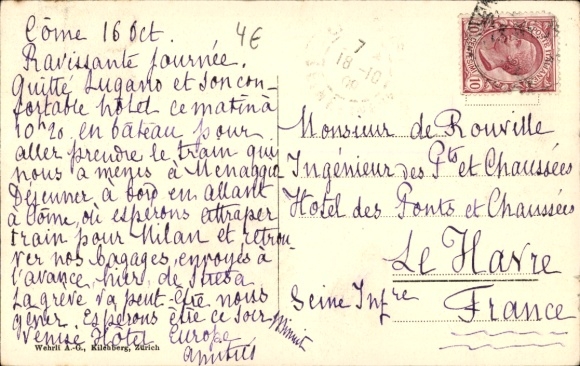 Côme 16 Oct.
4€
Ravissante journée.
Quitté Lugano et son con-
fortable hôtel ce matin à
10h20. en bâteau pour
aller prendre le train qui
nous a menés à Menaggio
Déjeuner à bord en allant
à Côme, où espérons attraper
train pour Milan et retrou-
ver nos bagages, envoyés à
l'avance, hier, de Stresa
La grève va peut-être nous
gêner. Espérons être ce soir minuit
Venise Hôtel Europe
amitiés
Wehrli A.-G., Kilchberg, Zürich
7
18·10
POSTE ITALIANE
10
Monsieur de Rouville
Ingénieur des Pts et Chaussées
Hotel des Ponts et Chaussées
Le Havre
Seine Infre
France